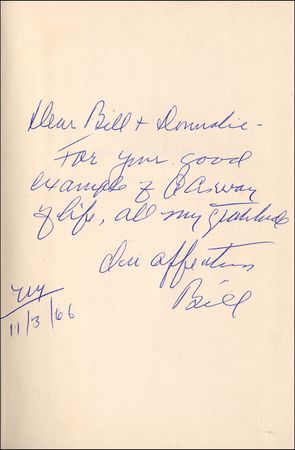 Dear Bill +
For your good
example of A A as way
of life, all my gratitude
affection
Bill
NY
11/3/66